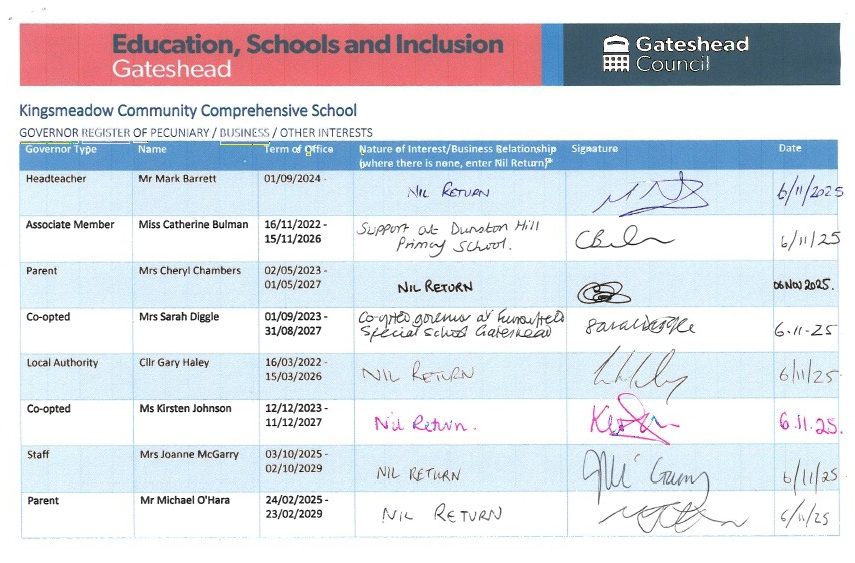 Education, Schools and Inclusion
Gateshead
Gateshead
Council
Kingsmeadow Community Comprehensive School
GOVERNOR REGISTER OF PECUNIARY / BUSINESS / OTHER INTERESTS
Governor Type Name Term of Office Nature of Interest/Business Relationship Signature Date
(where there is none, enter Nil Return)*
Headteacher Mr Mark Barrett 01/09/2024 - NIL RETURN 6/11/2025
Associate Member Miss Catherine Bulman 16/11/2022 - Support at Dunston Hill CBul 6/11/25
15/11/2026 Primary School.
Parent Mrs Cheryl Chambers 02/05/2023 - NIL RETURN 06 NOV 2025.
01/05/2027
Co-opted Mrs Sarah Diggle 01/09/2023 - Co-opted governor at Sarah Diggle 6-11-25
31/08/2027 Special School Gateshead
Local Authority Cllr Gary Haley 16/03/2022 - NIL RETURN 6/11/25
15/03/2026
Co-opted Ms Kirsten Johnson 12/12/2023 - Nil Return. 6.11.25.
11/12/2027
Staff Mrs Joanne McGarry 03/10/2025 - NIL RETURN 6/11/25
02/10/2029
Parent Mr Michael O'Hara 24/02/2025 - NIL RETURN 6/11/25
23/02/2029